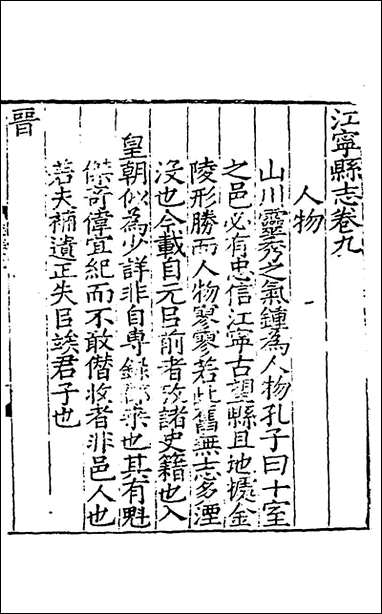 江寧縣志卷九
人物
山川靈秀之氣鍾為人物孔子曰十室
之邑必有忠信江寧古望縣且地據金
陵形勝而人物寥寥若此舊無志多湮
没也今載自元㠯前者攷諸史籍也入
皇朝似為少詳非自專錄郡乘也其有魁
傑奇偉宜紀而不敢僭收者非邑人也
若夫補遺正失㠯竢君子也
晉